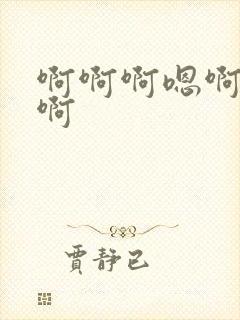 啊啊啊嗯啊
啊
贾静已